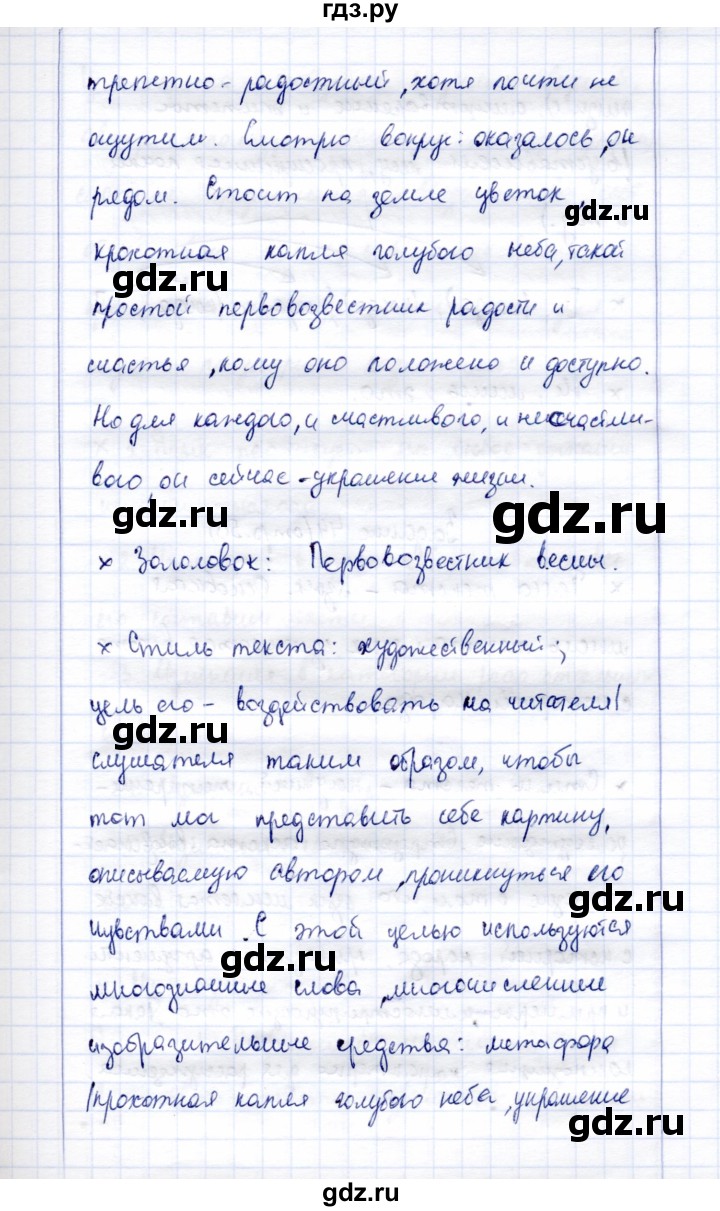 гдз.ру
трепетно-радостный, хотя почти не
ощутим. Смотрю вокруг: оказалось, он
рядом. Стоит на земле цветок,
gdz.ru
крохотная капля голубого неба, такой
gdz.ru
простой первовозвестник радости и
счастья, кому оно положено и доступно.
gdz.ru
Но для каждого, и счастливого, и несчастли-
вого, он сейчас - украшение жизни.
gdz.ru
gdz.ru
× Заголовок: Первовозвестник весны.
× Стиль текста: художественный;
цель его - воздействовать на читателя/
gdz.ru
слушателя таким образом, чтобы
gdz.ru
тот мог представить себе картину,
описываемую автором, проникнуться его
gdz.ru
чувствами. С этой целью используются
gdz.ru
многозначные слова, многочисленные
изобразительные средства: метафора
/крохотная капля голубого неба, украшение
gdz.ru
gdz.ru
gdz.ru